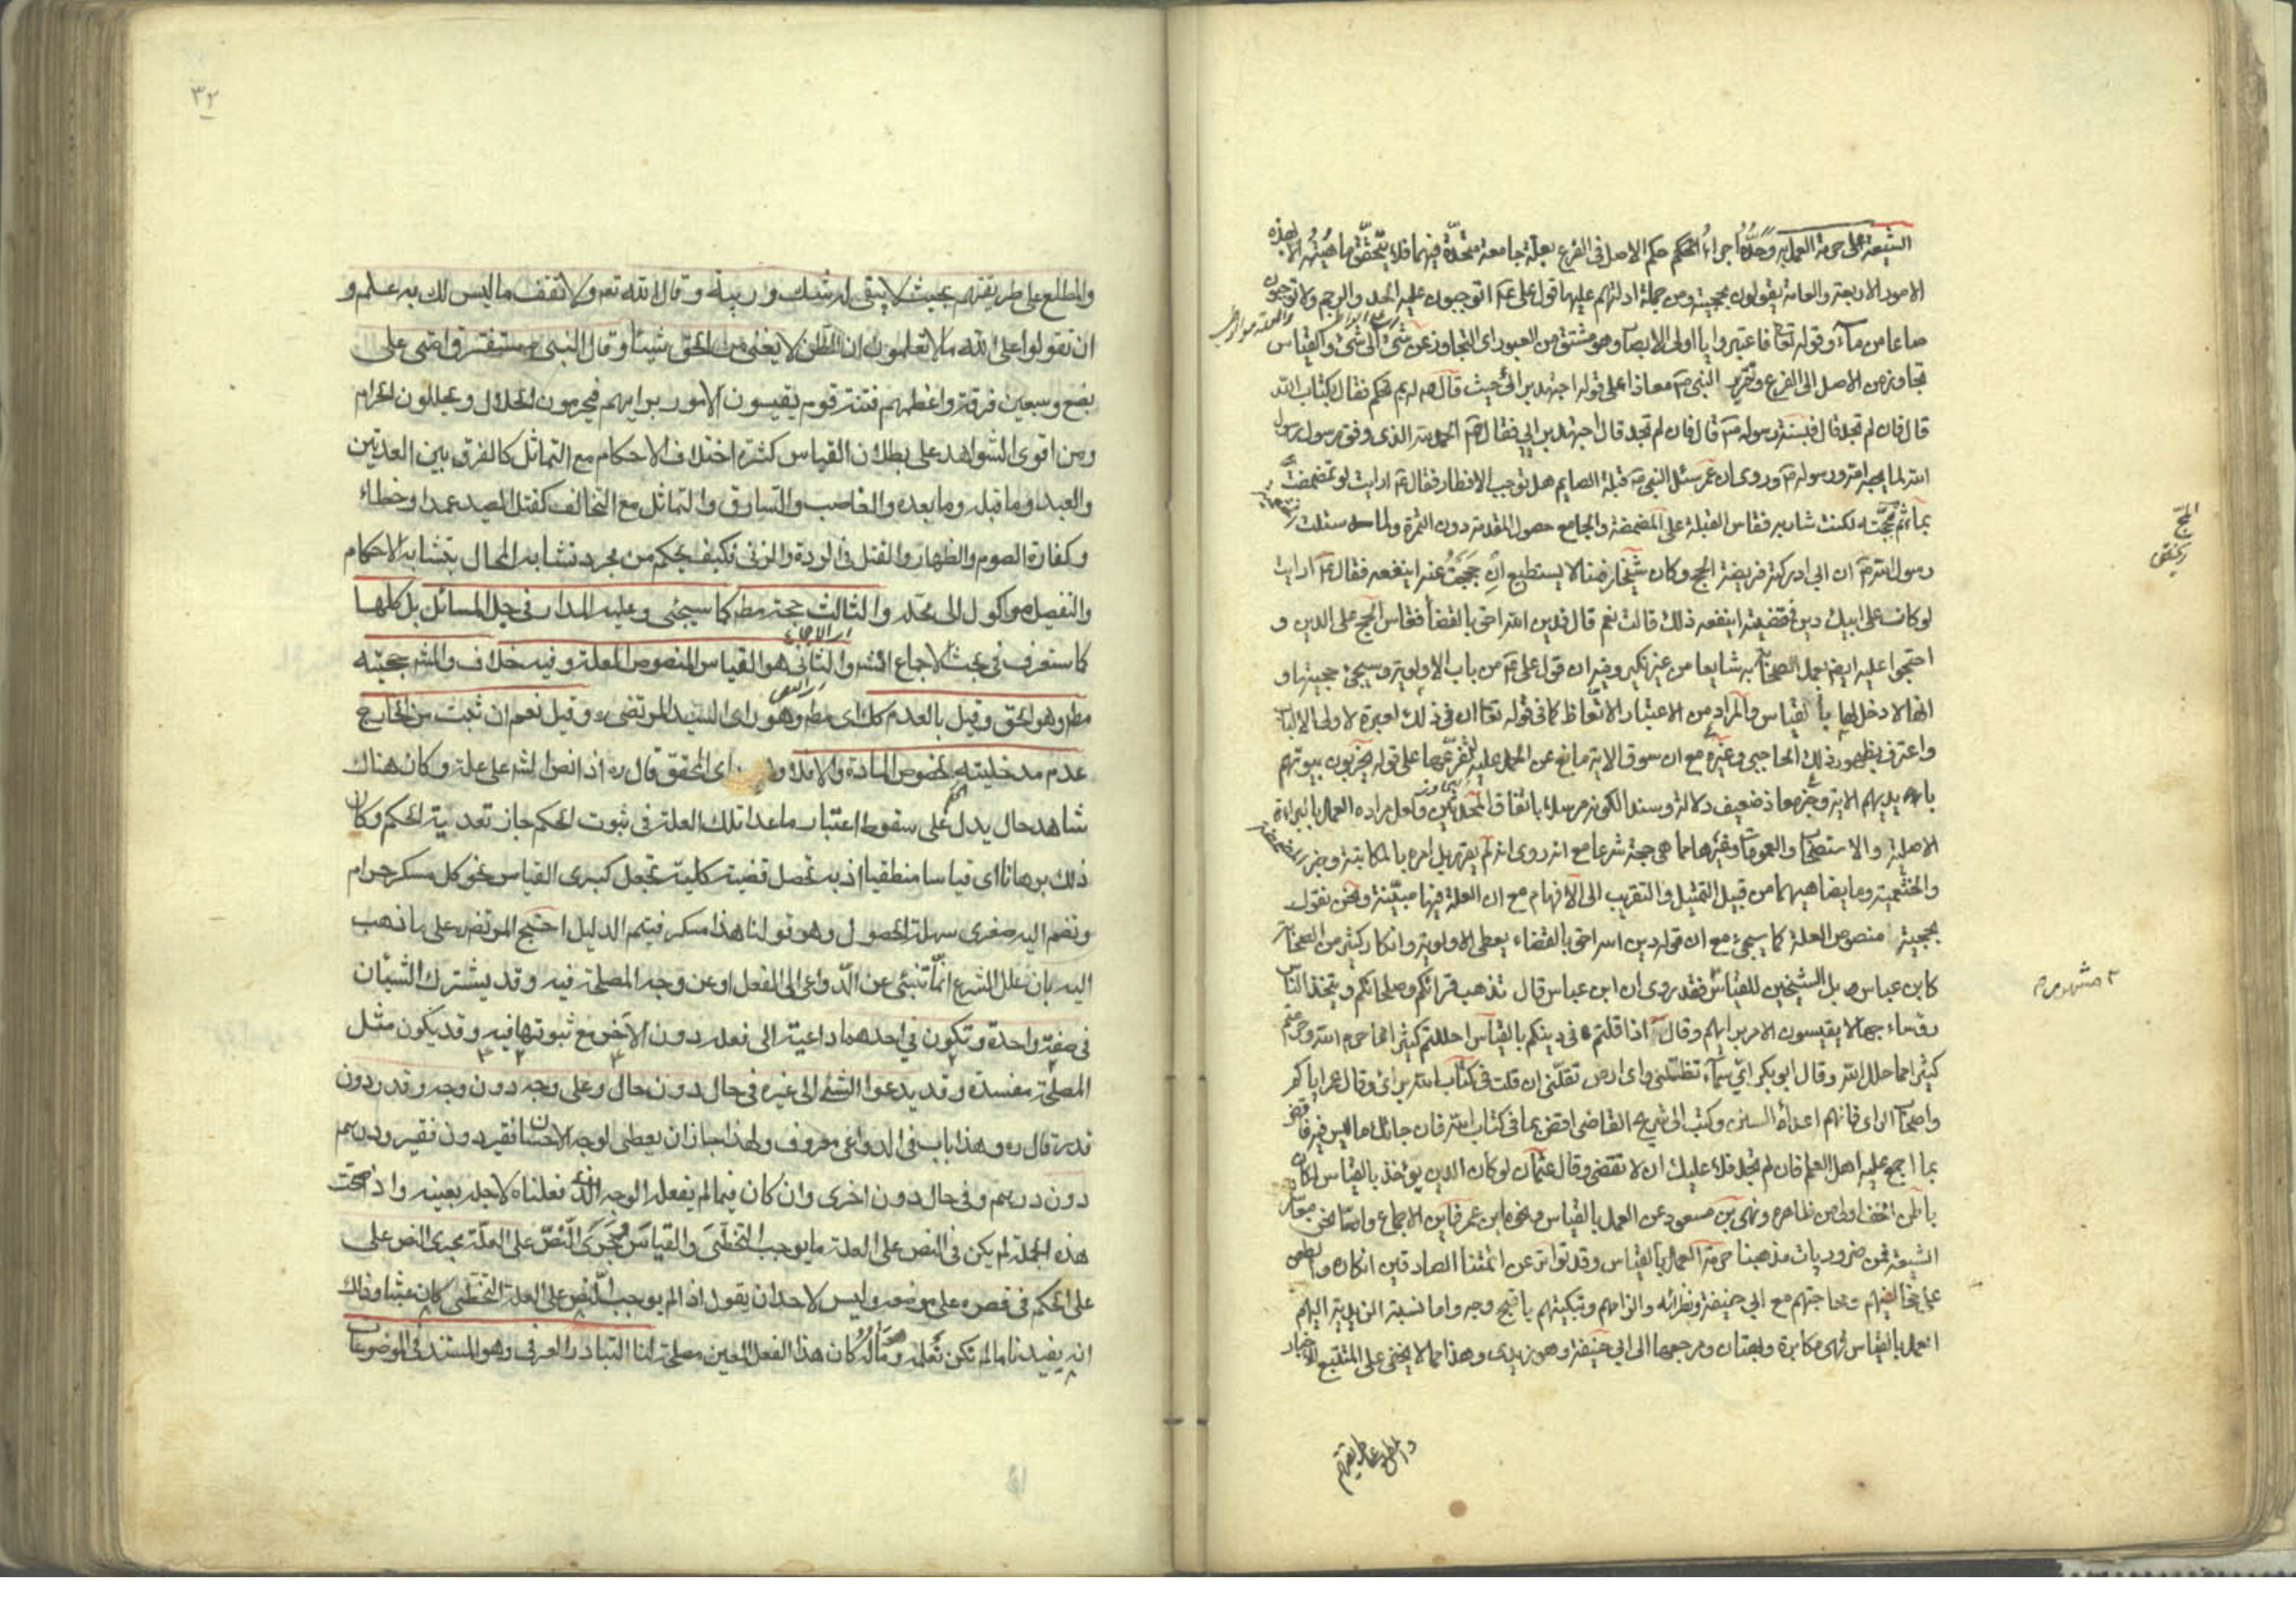 الشيعة على حرمة العمل به وحده اجراء الحكم حكم الاصل فى الفرع بعلة جامعة متحدة فيهما فلا يتحقق ماهيته الا بهذه
الامور الاربعة والعامة يقولون بحجيته ومن جملة ادلتهم عليها قول على ع اتوجبون عليه الحد والرجم ولا توجبون
صاعا من مآء وقوله تعا فاعتبروا يا اولى الابصار وهو مشتق من العبور اى التجاوز عن شئ الى شئ والقياس
تجاوز من الاصل الى الفرع وتقرير النبى ص معاذا على قوله اجتهد برائى حيث قال ص له بم تحكم فقال بكتاب الله
قال فان لم تجد قال فبسنة رسوله ص قال فان لم تجد قال اجتهد برايى فقال ص الحمد لله الذى وفق رسول رسول
الله لما يحبه الله ورسوله ص وروى ان عمر سئل النبى ص قبلة الصايم هل توجب الافطار فقال ع ارايت لو تمضمضت
بمآء ثم مججته اكنت شاربه فقاس القبلة على المضمضة والجامع حصول المقدمة دون الثمرة ولما سئلت
رسول الله ص ان ابى ادركته فريضة الحج وكان شيخا زمنا لا يستطيع ان حججت عنه اينفعه فقال ع ارايت
لو كان على ابيك دين فقضيته اينفعه ذلك قالت نعم قال فدين الله احق بالقضآء فقاس الحج على الدين و
احتجوا عليه ايضا بعمل الصحابة به شايعا من غير نكير وفيه ان قول على ع من باب الاولوية وسيجئ حجيتها و
انها لا دخل لها بالقياس والمراد من الاعتبار الاتعاظ كما فى قوله تعا ان فى ذلك لعبرة لاولى الالباب
واعترف بظهور ذلك الحاجبى وغيره مع ان سوق الاية مانع عن الحمل عليه لتفرعها على قوله يخربون بيوتهم
بايديهم الاية وخبر معاذ ضعيف دلالة وسندا لكونه مرسلا باتفاق المحدثين ولعل مراده العمل بالبراءة
الاصلية والاستصحاب والعمومات وغيرها مما هى حجة شرعا مع انه روى انه لم يقره بل امره بالمكاتبة وخبر
والخثعمية وما يضاهيهما من قبيل التمثيل والتقريب الى الافهام مع ان العلة فيها مبينة ونحن نقول
بحجية منصوص العلة كما سيجئ مع ان قوله دين الله احق بالقضاء يعطى الاولوية وانكار كثير من الصحابة
كابن عباس بل الشيخين للقياس فقد روى ان ابن عباس قال تذهب قرائكم وصلحائكم ويتخذ الناس
رؤساء جهالا يقيسون الامر برايهم وقال اذا قلتم فى دينكم بالقياس احللتم كثيرا مما حرم الله وحرمتم
كثيرا مما حلل الله وقال ابو بكر اى سمآء تظلنى واى ارض تقلنى ان قلت فى كتاب الله برائى وقال عمر اياكم
واصحاب الراى فانهم اعداء السنن وكتب الى شريح القاضى اقض بما فى كتاب الله فان جائك ما ليس فيه فاقض
بما اجمع عليه اهل العلم فان لم تجد فلا عليك ان لا تقضى وقال عثمان لو كان الدين يؤخذ بالقياس لكان
باطن الخف اولى من ظاهره ونهى بن مسعود عن العمل بالقياس ونحوه ابن عمر فاين الاجماع واما نحن معاشر
الشيعة فمن ضروريات مذهبنا حرمة العمل بالقياس وقد تواتر عن ائمتنا الصادقين انكاره والطعن
على مخالفيهم ومحاجتهم مع ابى حنيفة ونظرائه والزامهم وتبكيتهم باقبح وجه واما نسبة الزيدية اليهم
العمل بالقياس فهى مكابرة وبهتان ومرجعها الى ابى حنيفة وهو زيدى وهذا مما لا يخفى على المتتبع للاخبار
والمطلع على طريقتهم
٣٢
والمطلع على طريقتهم بحيث لا يبقى له شك وريبة وقال الله تع ولا تقف ما ليس لك به علم و
ان تقولوا على الله ما لا تعلمون ان الظن لا يغنى من الحق شيئا وقال النبى ص ستفترق امتى على
بضع وسبعين فرقة واعظمهم فتنة قوم يقيسون الامور برايهم فيحرمون الحلال ويحللون الحرام
ومن اقوى الشواهد على بطلان القياس كثرة اختلاف الاحكام مع التماثل كالفرق بين العدتين
والعيد وما قبله وما بعده والغاصب والسارق والتماثل مع التخالف كقتل الصيد عمدا وخطاء
وكفارة الصوم والظهار والقتل فى الردة والزنى فكيف يحكم من مجرد تشابه المحال بتشابه الاحكام
والتفصيل موكول الى محله والثالث حجة مط كما سيجئ وعليه المدار فى جل المسائل بل كلها
كما ستعرف فى بحث الاجماع انشه والثانى هو القياس المنصوص العلة وفيه خلاف والمشه حجيته
مط وهو الحق وقيل بالعدم كك اى مط وهو راى السيد المرتضى ره وقيل نعم ان ثبت من الخارج
عدم مدخلية خصوص المادة والا فلا وهو راى المحقق قال ره اذا نص الشه على علة وكان هناك
شاهد حال يدل على سقوط اعتبار ما عدا تلك العلة فى ثبوت الحكم جاز تعدية الحكم وكان
ذلك برهانا اى قياسا منطقيا اذ به تحصل قضية كلية تجعل كبرى القياس نحو كل مسكر حرام
ونضم اليه صغرى سهلة الحصول وهو قولنا هذا مسكر فيتم الدليل احتج المرتضى على ما ذهب
اليه بان علل الشرع انما تنبئ عن الدواعى الى الفعل او عن وجه المصلحة فيه وقد يشترك الشيئان
فى صفة واحدة وتكون فى احدهما داعية الى فعله دون الآخر مع ثبوتها فيه وقد يكون مثل
المصلحة مفسدة وقد يدعوا الشئ الى غيره فى حال دون حال وعلى وجه دون وجه وقدر دون
قدر قال ره وهذا باب فى الدواعى معروف ولهذا جاز ان يعطى لوجه الاحسان فقير دون فقير ودرهم
دون درهم وفى حال دون اخرى وان كان فيما لم يفعله الوجه الذى فعلناه لاجله بعينه واذا صحت
هذه الجملة لم يكن فى النص على العلة ما يوجب التخطى والقياس وجرى النص على العلة مجرى النص على
على الحكم فى قصره على موضعه وليس لاحد ان يقول اذا لم يوجب النص على العلة التخطى كان عبثا وذلك
انه يفيدنا ما لم نكن نعلمه وما له كان هذا الفعل المعين مصلحة لنا التبادر العرفى وهو المستند فى الموضوعات